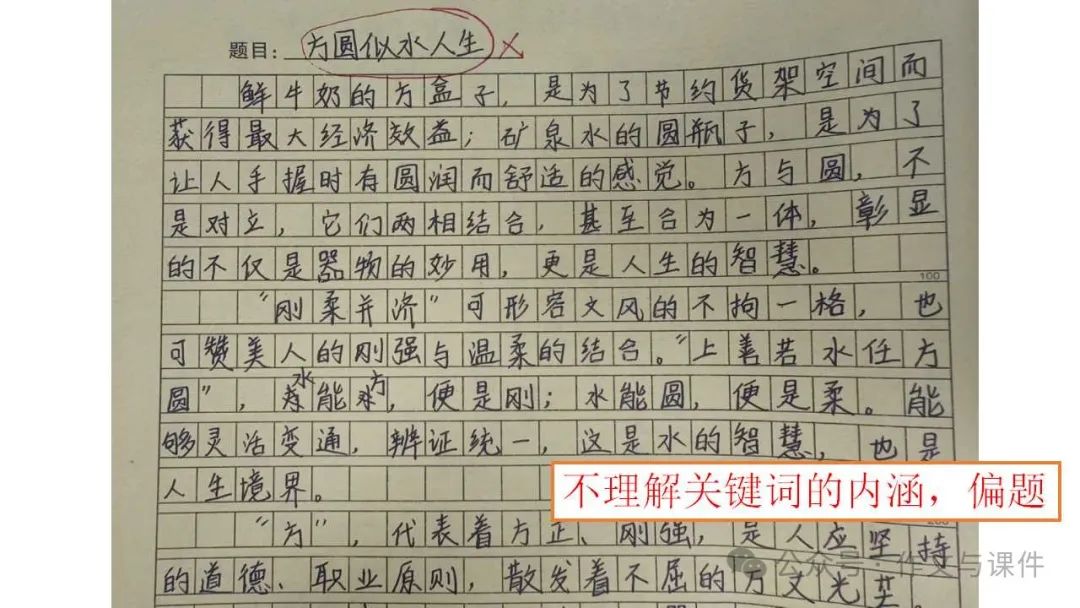 题目：方圆似水人生
鲜牛奶的方盒子，是为了节约货架空间而
获得最大经济效益；矿泉水的圆瓶子，是为了
让人手握时有圆润而舒适的感觉。方与圆，不
是对立，它们两相结合，甚至合为一体，彰显
的不仅是器物的妙用，更是人生的智慧。
100
“刚柔并济”可形容文风的不拘一格，也
可赞美人的刚强与温柔的结合。“上善若水任方
圆”，水能方，便是刚；水能圆，便是柔。能
够灵活变通，辨证统一，这是水的智慧，也是
人生境界。
不理解关键词的内涵，偏题
“方”，代表着方正、刚强，是人应坚持
的道德、职业原则，散发着不屈的万丈光芒。
公众号·作文与课件